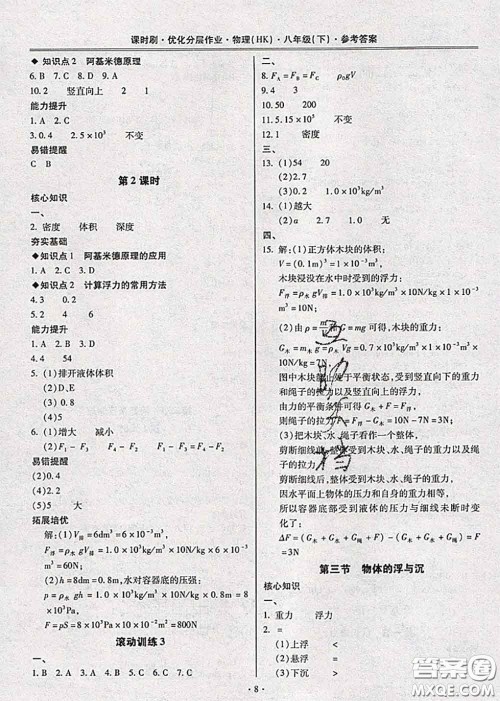 课时刷·优化分层作业·物理(HK)·八年级(下)·参考答案
◆知识点2 阿基米德原理
6.B 7.C 8.D 9.C
10.2 竖直向上 2 不变
能力提升
1.A 2.C
3.0.4 2.5×10³ 不变
易错提醒
C B
第2课时
核心知识
一、
2.密度 体积 深度
夯实基础
◆知识点1 阿基米德原理的应用
1.A 2.C 3.D
◆知识点2 计算浮力的常用方法
4.3 0.2
5.4 15
能力提升
1.A 2.D 3.B
4.4 54
5.(1)排开液体体积
(2)D、E
(3)0.8
(4)5
6.(1)增大 减小
(2)F₁−F₃ F₄−F₂ F₁−F₃=F₄−F₂
易错提醒
(2)0.5
(5)5 大
拓展培优
解:(1)V排=6dm³=6×10⁻³m³
F浮=ρ水gV排=1.0×10³kg/m³×10N/kg×6×10⁻³m³=60N;
(2)h=8dm=0.8m,水对容器底的压强:
p=ρ水gh=1.0×10³kg/m³×10N/kg×0.8m=8×10³Pa,
F=pS=8×10³Pa×10×10⁻²m²=800N
滚动训练3
一、
1.B 2.D 3.D 4.C 5.D 6.A 7.D
二、
8.F_A=F_B=F_C ρ₀gV
9.54 4
10.50 200
11.5.15×10³ 不变
12.1 密度
三、
13.(1)54 20
(2)2.7
(3)2 0.2 1.0×10³kg/m³
14.(1)越大
(2)a 2.7 1.0
四、
15.解:(1)正方体木块的体积:
V=(0.1m)³=1×10⁻³m³,
木块浸没在水中时受到的浮力:
F浮=ρ水gV排=1.0×10³kg/m³×10N/kg×1×10⁻³m³=10N;
(2)由ρ=m/V和G=mg可得,木块的重力:
G木=m木g=ρ木Vg=0.7×10³kg/m³×1×10⁻³m³×10N/kg=7N,
图中木块静止处于平衡状态,受到竖直向下的重力和绳子的拉力以及竖直向上的浮力,
由力的平衡条件可得G木+F=F浮,
则绳子的拉力F=F浮−G木=10N−7N=3N;
(3)把木块、水、绳子看作一个整体,
剪断细绳前整体受到木块、水、绳子的重力和绳子的拉力
剪断细绳后整体受到木块、水、绳子的重力,
因水平面上物体的压力和自身的重力相等,
所以容器底部受到液体的压力与细线未断时变化了:
第三节 物体的浮与沉
核心知识
一、
1.重力 浮力
2.=
(1)上浮 <
(2)悬浮 =
(3)下沉 >
·8·
答案圈
MXQE.COM